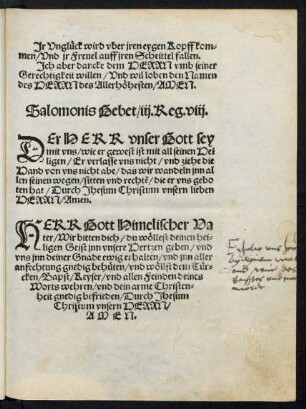 Jr Vnglück wird vber jren eygen Kopff kom-
men/Vnd jr Freuel auff jren Scheittel fallen.
Ich aber dancke dem HERRN vmb seiner
Gerechtigkeit willen/Vnd wil loben den Namen
des HERRN des Allerhöhesten/AMEN.
Salomonis Gebet/iij. Reg. viij.
DEr HERR vnser Gott sey
mit vns/wie er gewest ist mit all seinen Hei
ligen/Er verlasse vns nicht/vnd ziehe die
Hand von vns nicht abe/das wir wandeln jnn al
len seinen wegen/sitten vnd rechtē/die er vns gebo
ten hat/Durch Jhesum Christum vnsern lieben
HERRN/Amen.
HERR Gott Himelischer Va
ter/Wir bitten dich/du wöllest deinen hei-
ligen Geist jnn vnsere Hertzen geben/vnd
vns jnn deiner Gnade ewig erhalten/vnd jnn aller
anfechtung gnedig behüten/vnd wöllst dem Tür-
cken/Bapst/Keyser/vnd allen Feinden deines
Worts wehren/vnd dein arme Christen-
heit gnedig befrieden/Durch Jhesum
Christum vnsern HERRN/
AMEN.